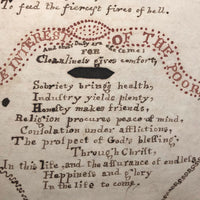 To feed the fiercest fires of hell.
INTEREST OF THE POOR
And they only are
FOR
Cleanliness gives comfort,
Sobriety brings health,
Industry yields plenty,
Honesty makes friends,
Religion procures peace of mind,
Consolation under afflictions,
The prospect of God's blessing,
Through Christ,
In this life and the assurance of endless
Happiness and glory
In the life to come.